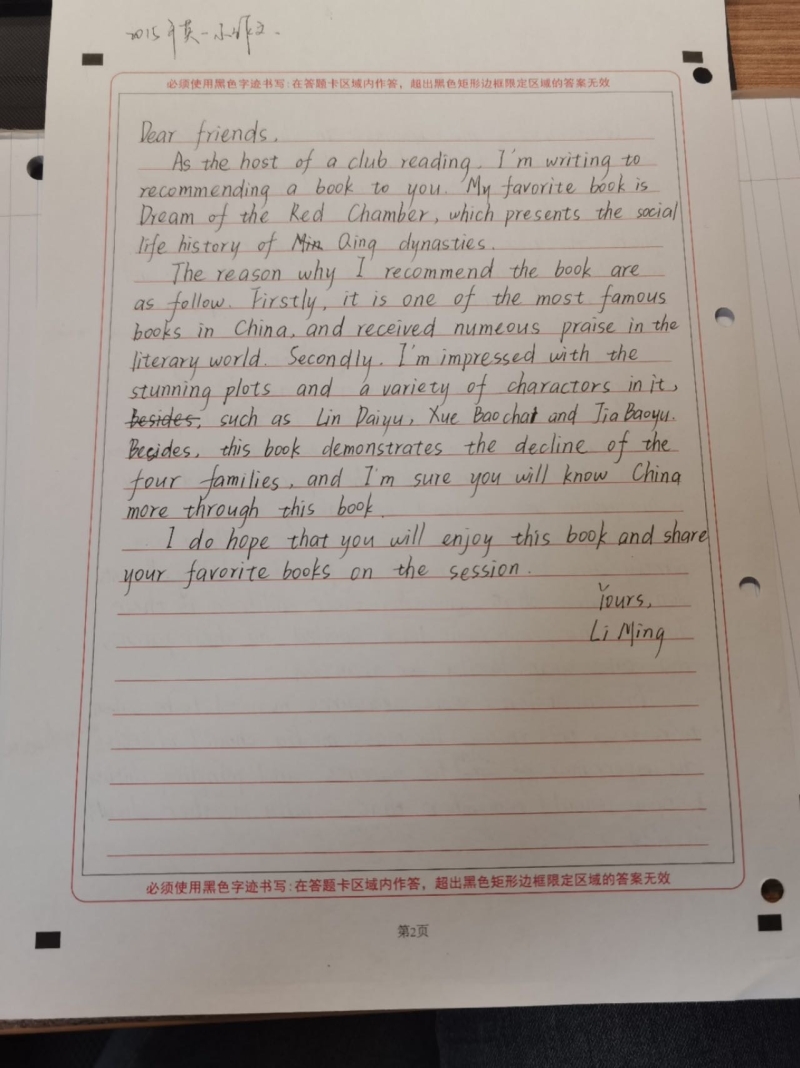 2015年英一小作文.
必须使用黑色字迹书写:在答题卡区域内作答，超出黑色矩形边框限定区域的答案无效
Dear friends,
As the host of a club reading, I'm writing to
recommending a book to you. My favorite book is
Dream of the Red Chamber, which presents the social
life history of Min Qing dynasties.
The reason why I recommend the book are
as follow. Firstly, it is one of the most famous
books in China, and received numeous praise in the
literary world. Secondly, I'm impressed with the
stunning plots and a variety of charactors in it,
besides, such as Lin Daiyu, Xue Baochai and Jia Baoyu.
Becides, this book demonstrates the decline of the
four families, and I'm sure you will know China
more through this book.
I do hope that you will enjoy this book and share
your favorite books on the session.
Yours,
Li Ming
必须使用黑色字迹书写:在答题卡区域内作答，超出黑色矩形边框限定区域的答案无效
第2页